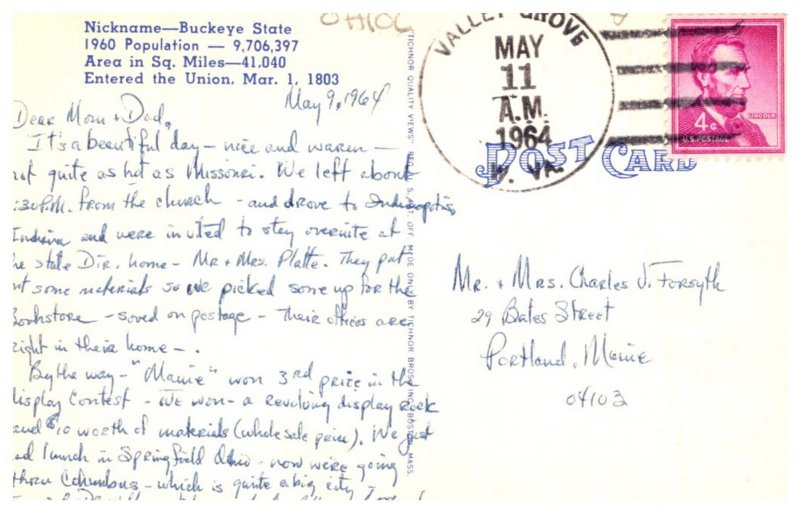 OHIO
Nickname—Buckeye State
1960 Population — 9,706,397
Area in Sq. Miles—41,040
Entered the Union, Mar. 1, 1803
May 9, 1964
Dear Mom & Dad,
It's a beautiful day - nice and warm -
not quite as hot as Missouri. We left about
:30 P.M. from the church - and drove to Indianapolis,
Indiana and were invited to stay overnite at
he state Dir. home - Mr & Mrs. Platte. They put
out some materials so we picked some up for the
Bookstore - saved on postage - Their offices are
right in their home - .
By the way - "Maine" won 3rd prize in the
display contest - we won - a revolving display rack
and $10 worth of materials (wholesale price). We just
ad lunch in Springfield Ohio - now we're going
thru Columbus - which is quite a big city
TICHNOR QUALITY VIEWS REG. U. S. PAT. OFF. MADE ONLY BY TICHNOR BROS. INC. BOSTON, MASS.
VALLEY GROVE
MAY
11
A.M.
1964
W. VA.
4¢
LINCOLN
U.S. POSTAGE
POST CARD
Mr. & Mrs. Charles J. Forsyth
29 Bates Street
Portland, Maine
04103